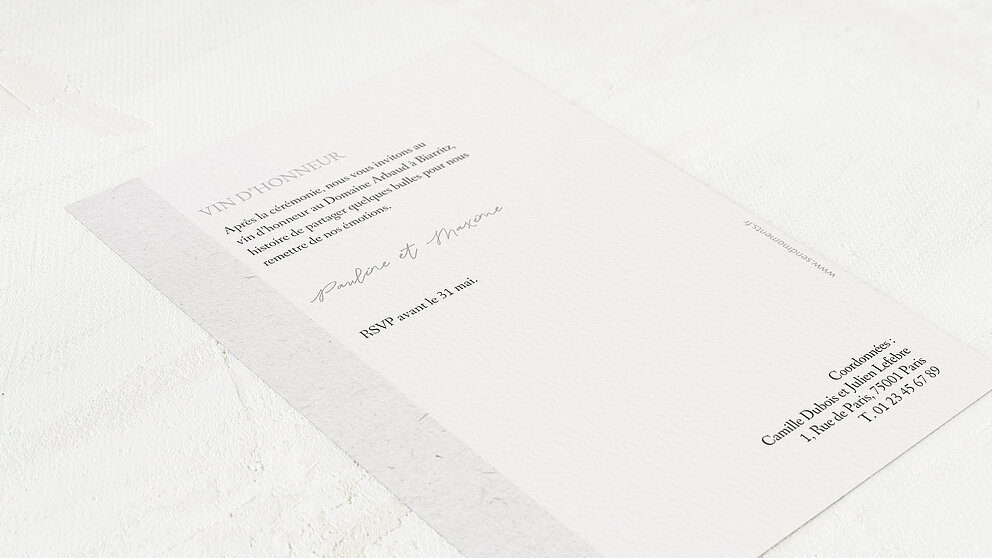 VIN D'HONNEUR
Après la cérémonie, nous vous invitons au
vin d'honneur au Domaine Arbaud à Biarritz,
histoire de partager quelques bulles pour nous
remettre de nos émotions.
Pauline et Maxime
RSVP avant le 31 mai.
www.sendmoments.fr
Coordonnées :
Camille Dubois et Julien Lefebre
1, Rue de Paris, 75001 Paris
T. 01 23 45 67 89